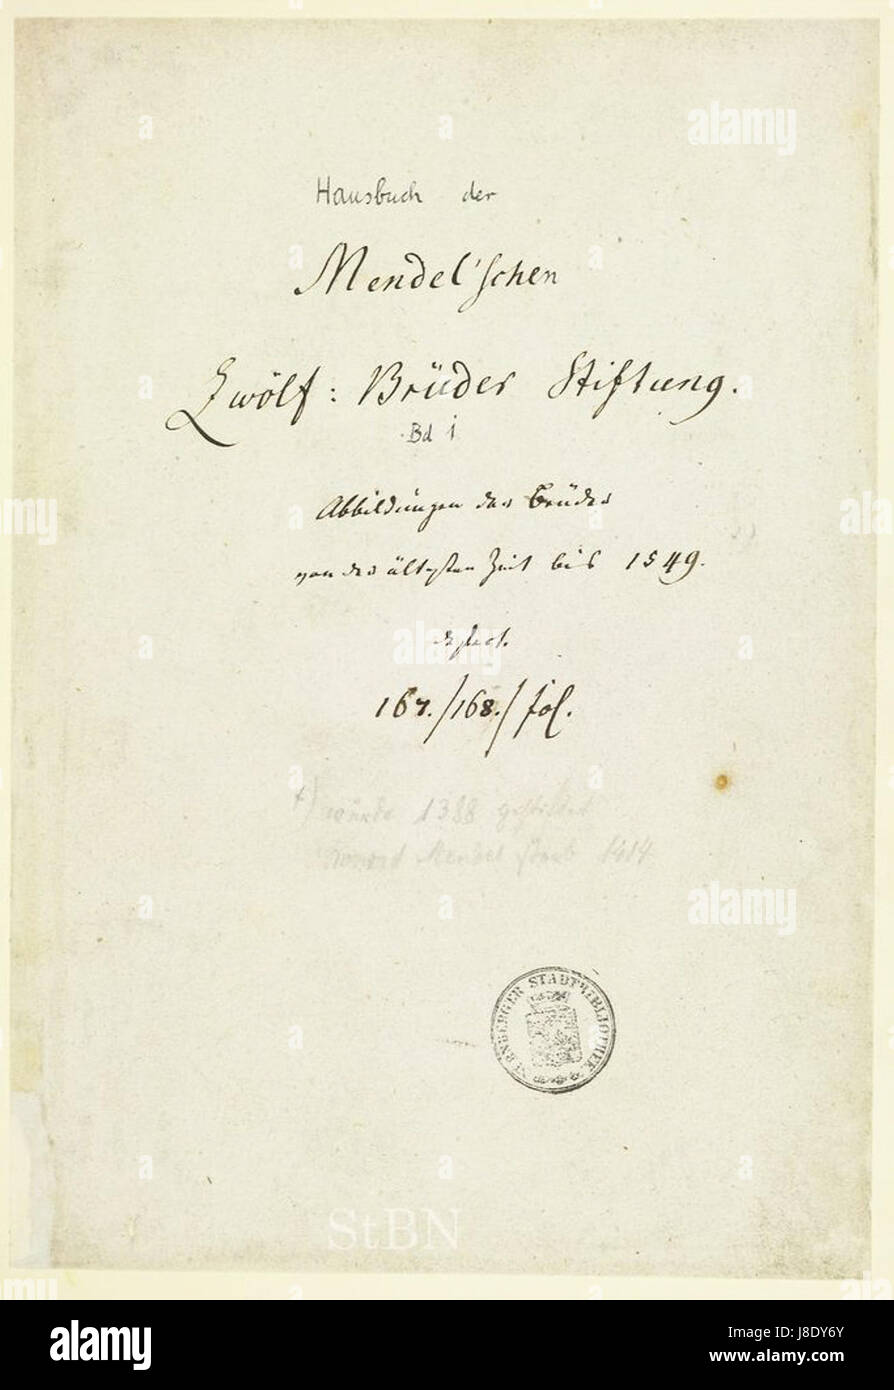 Hausbuch der
Mendel'schen
Zwölf: Brüder Stiftung.
Bd 1
Abbildungen der Brüder
von der ältesten Zeit bis 1549.
defect.
167./168./fol.
+) wurde 1388 gestiftet
Konrad Mendel starb 1414
NÜRNBERGER STADTBIBLIOTHEK
StBN
alamy
Image ID: J8DY6Y
www.alamy.com